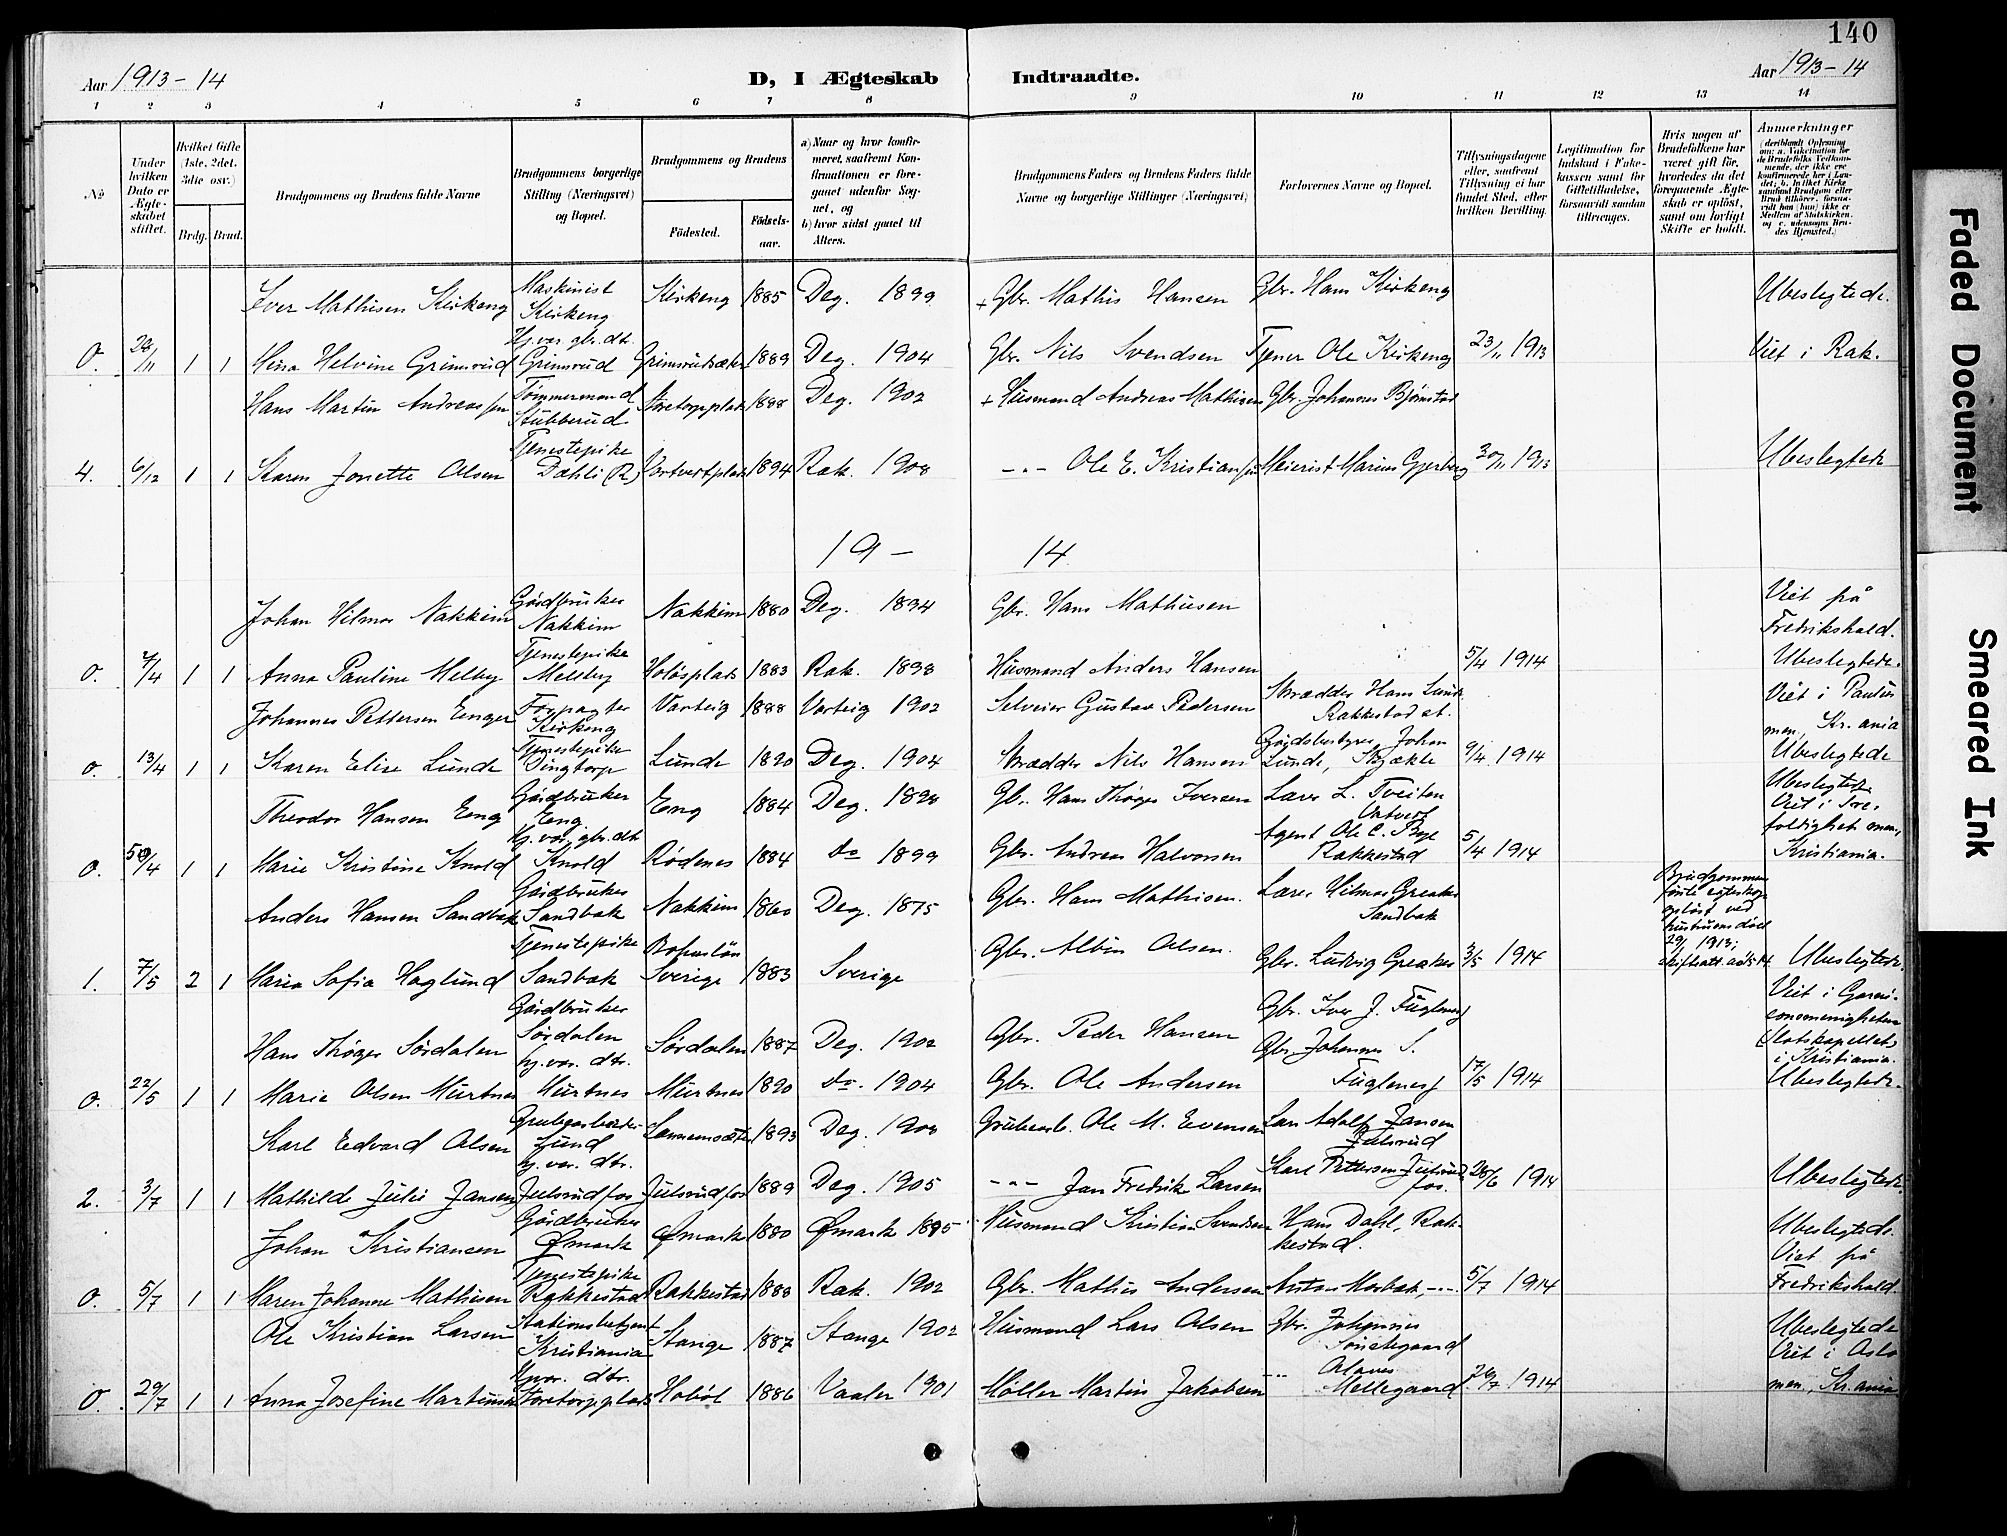 140
Aar 1913-14
D, I Ægteskab Indtraadte.
Aar 1913-14
1 2 3 4 5 6 7 8 9 10 11 12 13 14
No
Under hvilken Dato er Ægteskabet stiftet.
Hvilket Gifte (1ste, 2det, 3die osv.)
Brdg. Brud.
Brudgommens og Brudens fulde Navne
Brudgommens borgerlige Stilling (Næringsvei) og Bopæl.
Brudgommens og Brudens
Fødested. Fødsels-aar.
a) Naar og hvor konfirmeret, saafremt Konfirmationen er foregaaet udenfor Sognet, og
b) hvor sidst gaaet til Alters.
Brudgommens Faders og Brudens Faders fulde Navne og borgerlige Stillinger (Næringsvei)
Forlovernes Navne og Bopæl.
Tillysningsdagene eller, saafremt Tillysning ei har fundet Sted, efter hvilken Bevilling.
Legitimation for Indskud i Enkekassen samt for Giftetilladelse, forsaavidt saadan tiltrænges.
Hvis nogen af Brudefolkene har været gift før, hvorledes da det foregaaende Ægteskab er opløst, samt om lovligt Skifte er holdt.
Anmerkninger
Iver Mathisen Kirkeng Maskinist Kirkeng Kirkeng 1885 Deg. 1899 + Gbr. Mathis Hansen Gbr. Hans Kirkeng Ubeslegtede.
0. 28/11 1 1 Mina Helvine Grimsrud Hj.vær. gbr. dtr. Grimsrud 1889 Deg. 1904 Gbr. Nils Svendsen Tjener Ole Kirkeng 23/11 1913 Viet i Rak.
Hans Martin Andreassen Tømmermand Stubberud Storetorpplads 1888 Deg. 1902 + Husmand Andreas Mathisen Gbr. Johannes Bjørnstad
4. 6/12 1 1 Karen Jonette Olsen Tjenestepike Dæhli (R) 1894 Rak. 1908 -"- Ole E. Kristiansen Meierist Marius Gjerberg 30/11 1913 Ubeslegtede
19-14
Johan Hilmar Nakkim Gårdbruker Nakkim Nakkim 1880 Deg. 1894 Gbr. Hans Mathisen Viet på Fredrikshald.
0. 7/4 1 1 Anna Pauline Melby Tjenestepike Melby 1883 Rak. 1898 Husmand Anders Hansen 5/4 1914 Ubeslegtede.
Johannes Pettersen Enger Forpagter Kirkeng Varteig 1888 Varteig 1902 Selveier Gustav Pedersen Skrædder Hans Lunde Rakkestad st. Viet i Paulus men, Kr.ania
0. 13/4 1 1 Karen Elise Lunde Tjenestepike Dingtorp Lunde 1890 Deg. 1904 Skrædder Nils Hansen Gårdsbestyrer Johan Lunde, Skjækle 9/4 1914 Ubeslegtede
Theodor Hansen Eng Gårdbruker Eng Eng 1884 Deg. 1898 Gbr. Hans Thøger Iversen Lærer L. Tveiten Ubeslegtede Viet i Trefoldighet men, Kristiania.
0. 1 1 Marie Kristine Knold Hj.vær. gbr. dtr. Knold Rødenes 1884 do 1899 Gbr. Andreas Halvorsen Agent Ole C. Rakkestad 5/4 1914
Anders Hansen Sandbæk Gårdbruker Sandbæk Nakkim 1860 Deg. 1875 Gbr. Hans Mathisen. Lærer Hilmar Greaker Sandbæk Brudgommens første egteskap opløst ved hustruens død 1913;
1. 7/5 2 1 Maria Sofia Haglund Tjenestepike Sandbæk Bohuslän Sverige 1883 Sverige Gbr. Albin Olsen. Gbr. Ludvig Greaker 3/5 1914 Ubeslegtede.
Hans Thøger Sørdalen Gårdbruker Sørdalen Sørdalen 1887 Deg. 1902 Gbr. Peder Hansen Gbr. Iver J. Fuglenes Viet i Garnisonsmenigheten (Slotskapellet) i Kristiania.
0. 22/5 1 1 Marie Olsen Murtnes hj. vær. dtr. Murtnes Murtnes 1890 do. 1904 Gbr. Ole Andersen Gbr Johannes S. Fuglenes 17/5 1914 Ubeslegtede.
Karl Edvard Olsen Grubearbeider 1893 Deg. 1908 Grubearb. Ole M. Evensen Lars Adolf Jansen Julsrud
2. 3/7 1 1 Mathilde Julie Jansen hj. vær. dtr. Julsrudfos Julsrudfos 1889 Deg. 1905 -"- Jan Fredrik Larsen Karl Pettersen Julsrudfos. 28/6 1914 Ubeslegtede.
Johan Kristiansen Gårdbruker Ømark Ømark 1880 Ømark 1895 Husmand Kristian Svendsen Hans Dahl, Rakkestad. Ubeslegtede. Viet på Fredrikshald.
0. 5/7 1 1 Maren Johanne Mathisen Tjenestepike Rakkestad Rakkestad 1888 Rak. 1902 Gbr. Mathis Andersen Anton Harbak, -"- 5/7 1914
Ole Kristian Larsen Stationsbetjent Kristiania Stange 1887 Stange 1902 Husmand Lars Olsen Gbr. Johannes Ubeslegtede Viet i Oslo men, Kr.ania
0. 29/7 1 1 Anna Josefine Martinsen Hj.vær. dtr. Storetorpplads Hobøl 1886 Vaaler 1901 Møller Martin Jakobsen -"- Olaves Mellegaard 26/7 1914
Faded Document
Smeared Ink